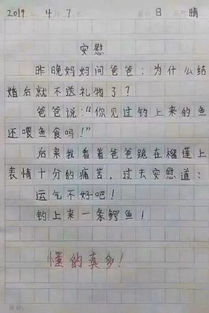 2019 4月7日 晴
安慰
昨晚妈妈问爸爸：为什么结
婚后就不送礼物了？
爸爸说：“你见过钓上来的鱼
还喂鱼食吗！”
后来我看着爸爸跪在榴莲上
表情十分的痛苦，过去安慰道：
运气不好吧！
钓上来一条鳄鱼！
懂的真多！